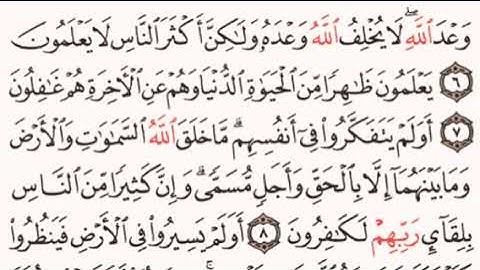 وَعْدَ ٱللَّهِۖ لَا يُخْلِفُ ٱللَّهُ وَعْدَهُۥ وَلَٰكِنَّ أَكْثَرَ ٱلنَّاسِ لَا يَعْلَمُونَ
٦ يَعْلَمُونَ ظَٰهِرًا مِّنَ ٱلْحَيَوٰةِ ٱلدُّنْيَا وَهُمْ عَنِ ٱلْأَخِرَةِ هُمْ غَٰفِلُونَ
٧ أَوَلَمْ يَتَفَكَّرُوا۟ فِىٓ أَنفُسِهِمۗ مَّا خَلَقَ ٱللَّهُ ٱلسَّمَٰوَٰتِ وَٱلْأَرْضَ
وَمَا بَيْنَهُمَآ إِلَّا بِٱلْحَقِّ وَأَجَلٍ مُّسَمًّىۗ وَإِنَّ كَثِيرًا مِّنَ ٱلنَّاسِ
بِلِقَآئِ رَبِّهِمْ لَكَٰفِرُونَ ٨ أَوَلَمْ يَسِيرُوا۟ فِى ٱلْأَرْضِ فَيَنظُرُوا۟